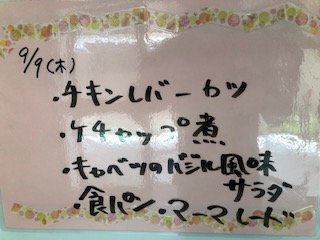 9/9(木)
・チキンレバーカツ
・ケチャップ煮
・キャベツのバジル風味
サラダ
・食パン・マーマレード